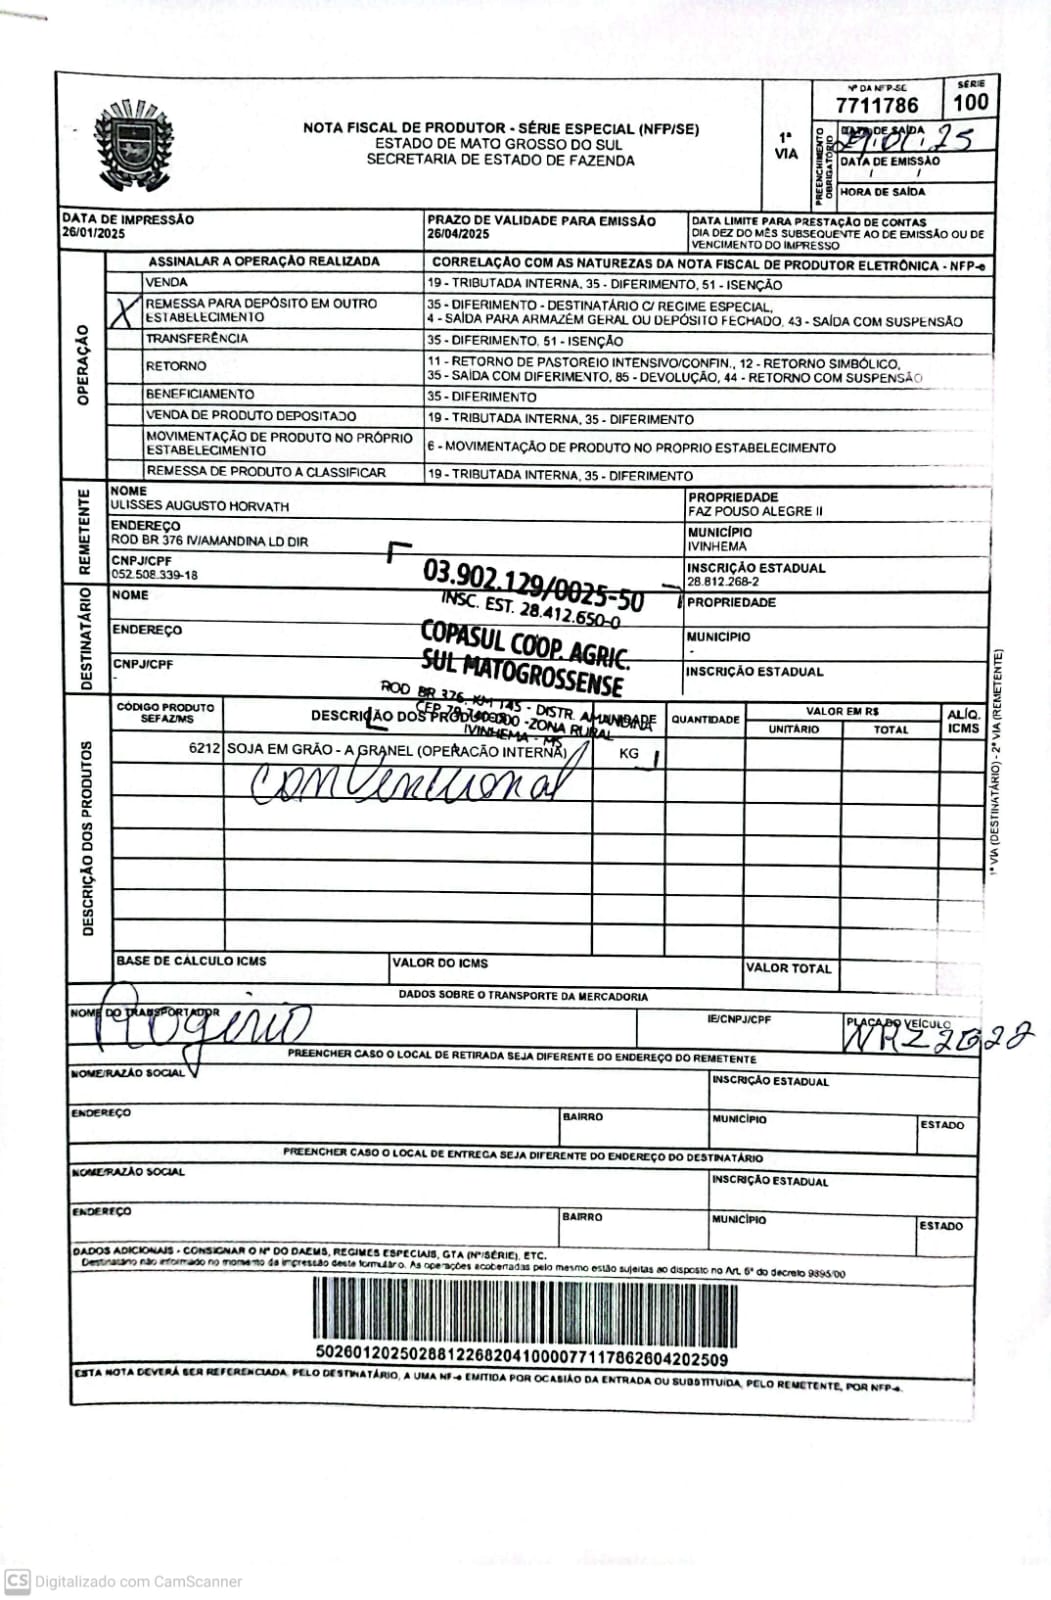 Nº DA NFP-SE
7711786
SÉRIE
100
NOTA FISCAL DE PRODUTOR - SÉRIE ESPECIAL (NFP/SE)
ESTADO DE MATO GROSSO DO SUL
SECRETARIA DE ESTADO DE FAZENDA
1ª
VIA
PREENCHIMENTO
OBRIGATÓRIO
DATA DE SAÍDA
DATA DE EMISSÃO
/ /
HORA DE SAÍDA
DATA DE IMPRESSÃO
26/01/2025
PRAZO DE VALIDADE PARA EMISSÃO
26/04/2025
DATA LIMITE PARA PRESTAÇÃO DE CONTAS
DIA DEZ DO MÊS SUBSEQUENTE AO DE EMISSÃO OU DE
VENCIMENTO DO IMPRESSO
OPERAÇÃO
ASSINALAR A OPERAÇÃO REALIZADA
CORRELAÇÃO COM AS NATUREZAS DA NOTA FISCAL DE PRODUTOR ELETRÔNICA - NFP-e
VENDA
19 - TRIBUTADA INTERNA, 35 - DIFERIMENTO, 51 - ISENÇÃO
X
REMESSA PARA DEPÓSITO EM OUTRO
ESTABELECIMENTO
35 - DIFERIMENTO - DESTINATÁRIO C/ REGIME ESPECIAL,
4 - SAÍDA PARA ARMAZÉM GERAL OU DEPÓSITO FECHADO, 43 - SAÍDA COM SUSPENSÃO
TRANSFERÊNCIA
35 - DIFERIMENTO, 51 - ISENÇÃO
RETORNO
11 - RETORNO DE PASTOREIO INTENSIVO/CONFIN., 12 - RETORNO SIMBÓLICO,
35 - SAÍDA COM DIFERIMENTO, 85 - DEVOLUÇÃO, 44 - RETORNO COM SUSPENSÃO
BENEFICIAMENTO
35 - DIFERIMENTO
VENDA DE PRODUTO DEPOSITADO
19 - TRIBUTADA INTERNA, 35 - DIFERIMENTO
MOVIMENTAÇÃO DE PRODUTO NO PRÓPRIO
ESTABELECIMENTO
6 - MOVIMENTAÇÃO DE PRODUTO NO PROPRIO ESTABELECIMENTO
REMESSA DE PRODUTO A CLASSIFICAR
19 - TRIBUTADA INTERNA, 35 - DIFERIMENTO
REMETENTE
NOME
ULISSES AUGUSTO HORVATH
PROPRIEDADE
FAZ POUSO ALEGRE II
ENDEREÇO
ROD BR 376 IV/AMANDINA LD DIR
MUNICÍPIO
IVINHEMA
CNPJ/CPF
052.508.339-18
INSCRIÇÃO ESTADUAL
28.812.268-2
DESTINATÁRIO
NOME
PROPRIEDADE
ENDEREÇO
MUNICÍPIO
-
CNPJ/CPF
-
INSCRIÇÃO ESTADUAL
03.902.129/0025-50
INSC. EST. 28.412.650-0
COPASUL COOP. AGRIC.
SUL MATOGROSSENSE
ROD BR 376, KM 145 - DISTR. AMANDINA
CEP 79.740-000 - ZONA RURAL
IVINHEMA - MS
DESCRIÇÃO DOS PRODUTOS
CÓDIGO PRODUTO
SEFAZ/MS
DESCRIÇÃO DOS PRODUTOS
UNIDADE
QUANTIDADE
VALOR EM R$
UNITÁRIO
TOTAL
ALÍQ.
ICMS
6212
SOJA EM GRÃO - A GRANEL (OPERACÃO INTERNA)
KG
convencional
BASE DE CÁLCULO ICMS
VALOR DO ICMS
VALOR TOTAL
1ª VIA (DESTINATÁRIO) - 2ª VIA (REMETENTE)
DADOS SOBRE O TRANSPORTE DA MERCADORIA
NOME DO TRANSPORTADOR
Rogério
IE/CNPJ/CPF
PLACA DO VEÍCULO
PREENCHER CASO O LOCAL DE RETIRADA SEJA DIFERENTE DO ENDEREÇO DO REMETENTE
NOME/RAZÃO SOCIAL
INSCRIÇÃO ESTADUAL
ENDEREÇO
BAIRRO
MUNICÍPIO
ESTADO
PREENCHER CASO O LOCAL DE ENTREGA SEJA DIFERENTE DO ENDEREÇO DO DESTINATÁRIO
NOME/RAZÃO SOCIAL
INSCRIÇÃO ESTADUAL
ENDEREÇO
BAIRRO
MUNICÍPIO
ESTADO
DADOS ADICIONAIS - CONSIGNAR O Nº DO DAEMS, REGIMES ESPECIAIS, GTA (Nº/SÉRIE), ETC.
Destinatário não informado no momento da impressão deste formuláro. As operações acobertadas pelo mesmo estão sujeitas ao disposto no Art. 6º do decreto 9895/00
50260120250288122682041000077117862604202509
ESTA NOTA DEVERÁ SER REFERENCIADA, PELO DESTINATÁRIO, A UMA NF-e EMITIDA POR OCASIÃO DA ENTRADA OU SUBSTITUÍDA, PELO REMETENTE, POR NFP-e.
CS Digitalizado com CamScanner